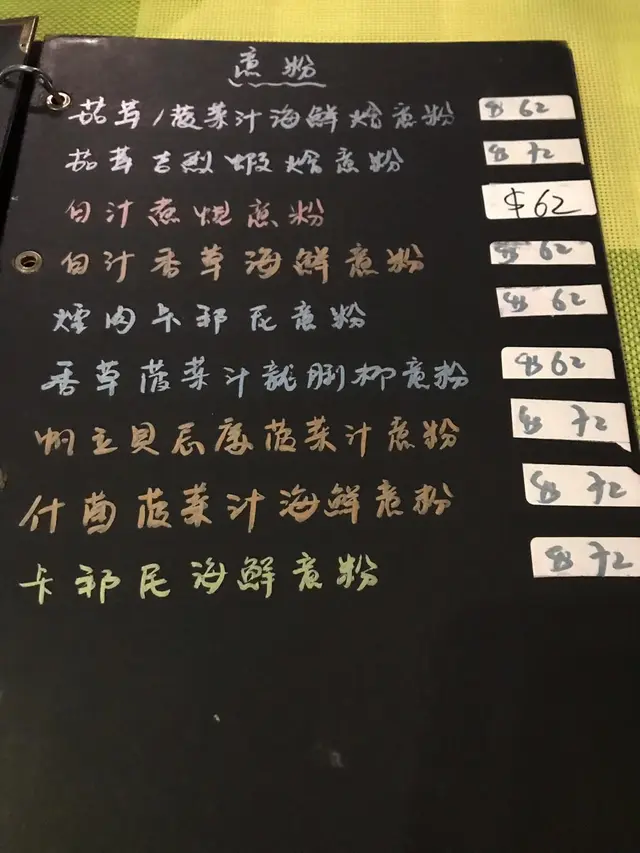 意粉
茄茸/菠菜汁海鮮燴意粉 $62
茄茸吉烈蝦燴意粉 $72
白汁意粉 $62
白汁香草海鮮意粉 $62
煙肉卡邦尼意粉 $62
香草菠菜汁龍脷柳意粉 $62
帆立貝菠菜汁意粉 $72
什菌菠菜汁海鮮意粉 $72
卡邦尼海鮮意粉 $72